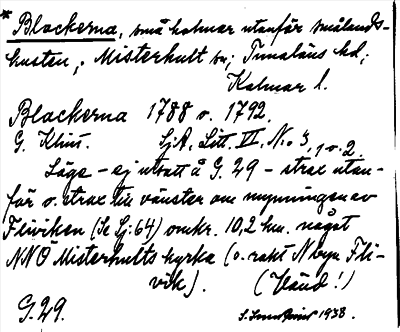 * Blackerna, små holmar utanför smålands-
kusten, Misterhult sn; Tunaläns hd;
Kalmar l.
Blackerna 1788 o. 1792.
G. Klint. SjA, Litt. VI, N:o 3, 1 o. 2
Läge - ej utsatt å G. 29 - strax utan-
för o. strax till vänster om mynningen av
Fliviken (Se Sj: 64) omkr. 10,2 km. något
NNÖ Misterhults kyrka (o. rakt N byn Fli-
vik). (Vänd!)
G. 29. 1938.